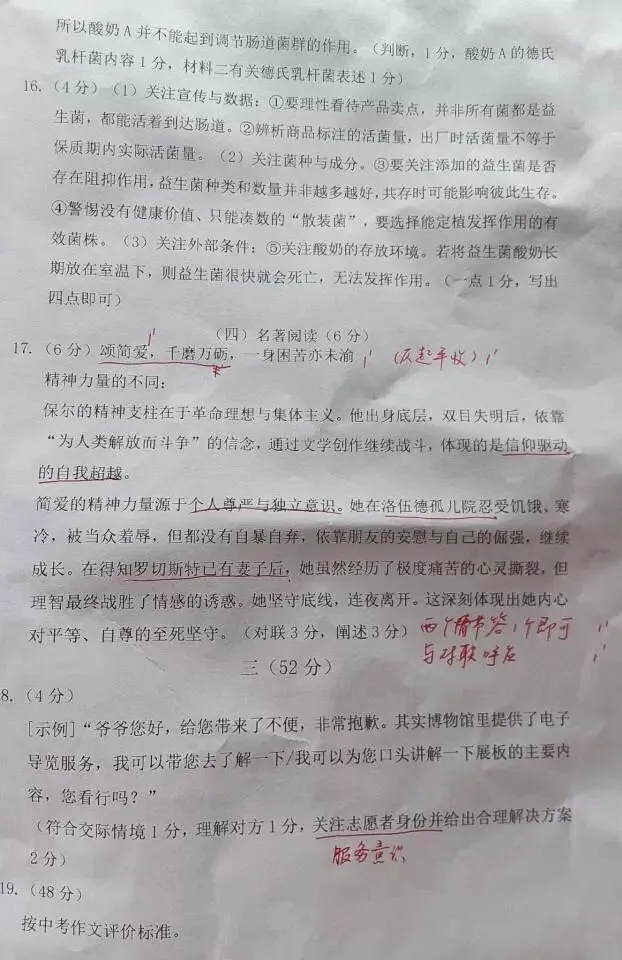 所以酸奶A并不能起到调节肠道菌群的作用。（判断，1分，酸奶A的德氏
乳杆菌内容1分，材料二有关德氏乳杆菌表述1分）
16.（4分）（1）关注宣传与数据：①要理性看待产品卖点，并非所有菌都是益
生菌，都能活着到达肠道。②辨析商品标注的活菌量，出厂时活菌量不等于
保质期内实际活菌量。（2）关注菌种与成分。③要关注添加的益生菌是否
存在阻抑作用，益生菌种类和数量并非越多越好，共存时可能影响彼此生存。
④警惕没有健康价值、只能凑数的“散装菌”，要选择能定植发挥作用的有
效菌株。（3）关注外部条件：⑤关注酸奶的存放环境。若将益生菌酸奶长
期放在室温下，则益生菌很快就会死亡，无法发挥作用。（一点1分，写出
四点即可）
（四）名著阅读（6分）
1'
17.（6分）颂简爱，千磨万砺，一身困苦亦未渝 1' （仄起平收）1'
精神力量的不同：
保尔的精神支柱在于革命理想与集体主义。他出身底层，双目失明后，依靠
“为人类解放而斗争”的信念，通过文学创作继续战斗，体现的是信仰驱动
的自我超越。
简爱的精神力量源于个人尊严与独立意识。她在洛伍德孤儿院忍受饥饿、寒
冷，被当众羞辱，但都没有自暴自弃，依靠朋友的安慰与自己的倔强，继续
成长。在得知罗切斯特已有妻子后，她虽然经历了极度痛苦的心灵撕裂，但
理智最终战胜了情感的诱惑。她坚守底线，连夜离开。这深刻体现出她内心
对平等、自尊的至死坚守。（对联3分，阐述3分） 两个情节答1个即可 1'
与对联呼应 1'
三（52分）
8.（4分）
[示例]“爷爷您好，给您带来了不便，非常抱歉。其实博物馆里提供了电子
导览服务，我可以带您去了解一下/我可以为您口头讲解一下展板的主要内
容，您看行吗？”
（符合交际情境1分，理解对方1分，关注志愿者身份并给出合理解决方案
2分）
服务意识
19.（48分）
按中考作文评价标准。